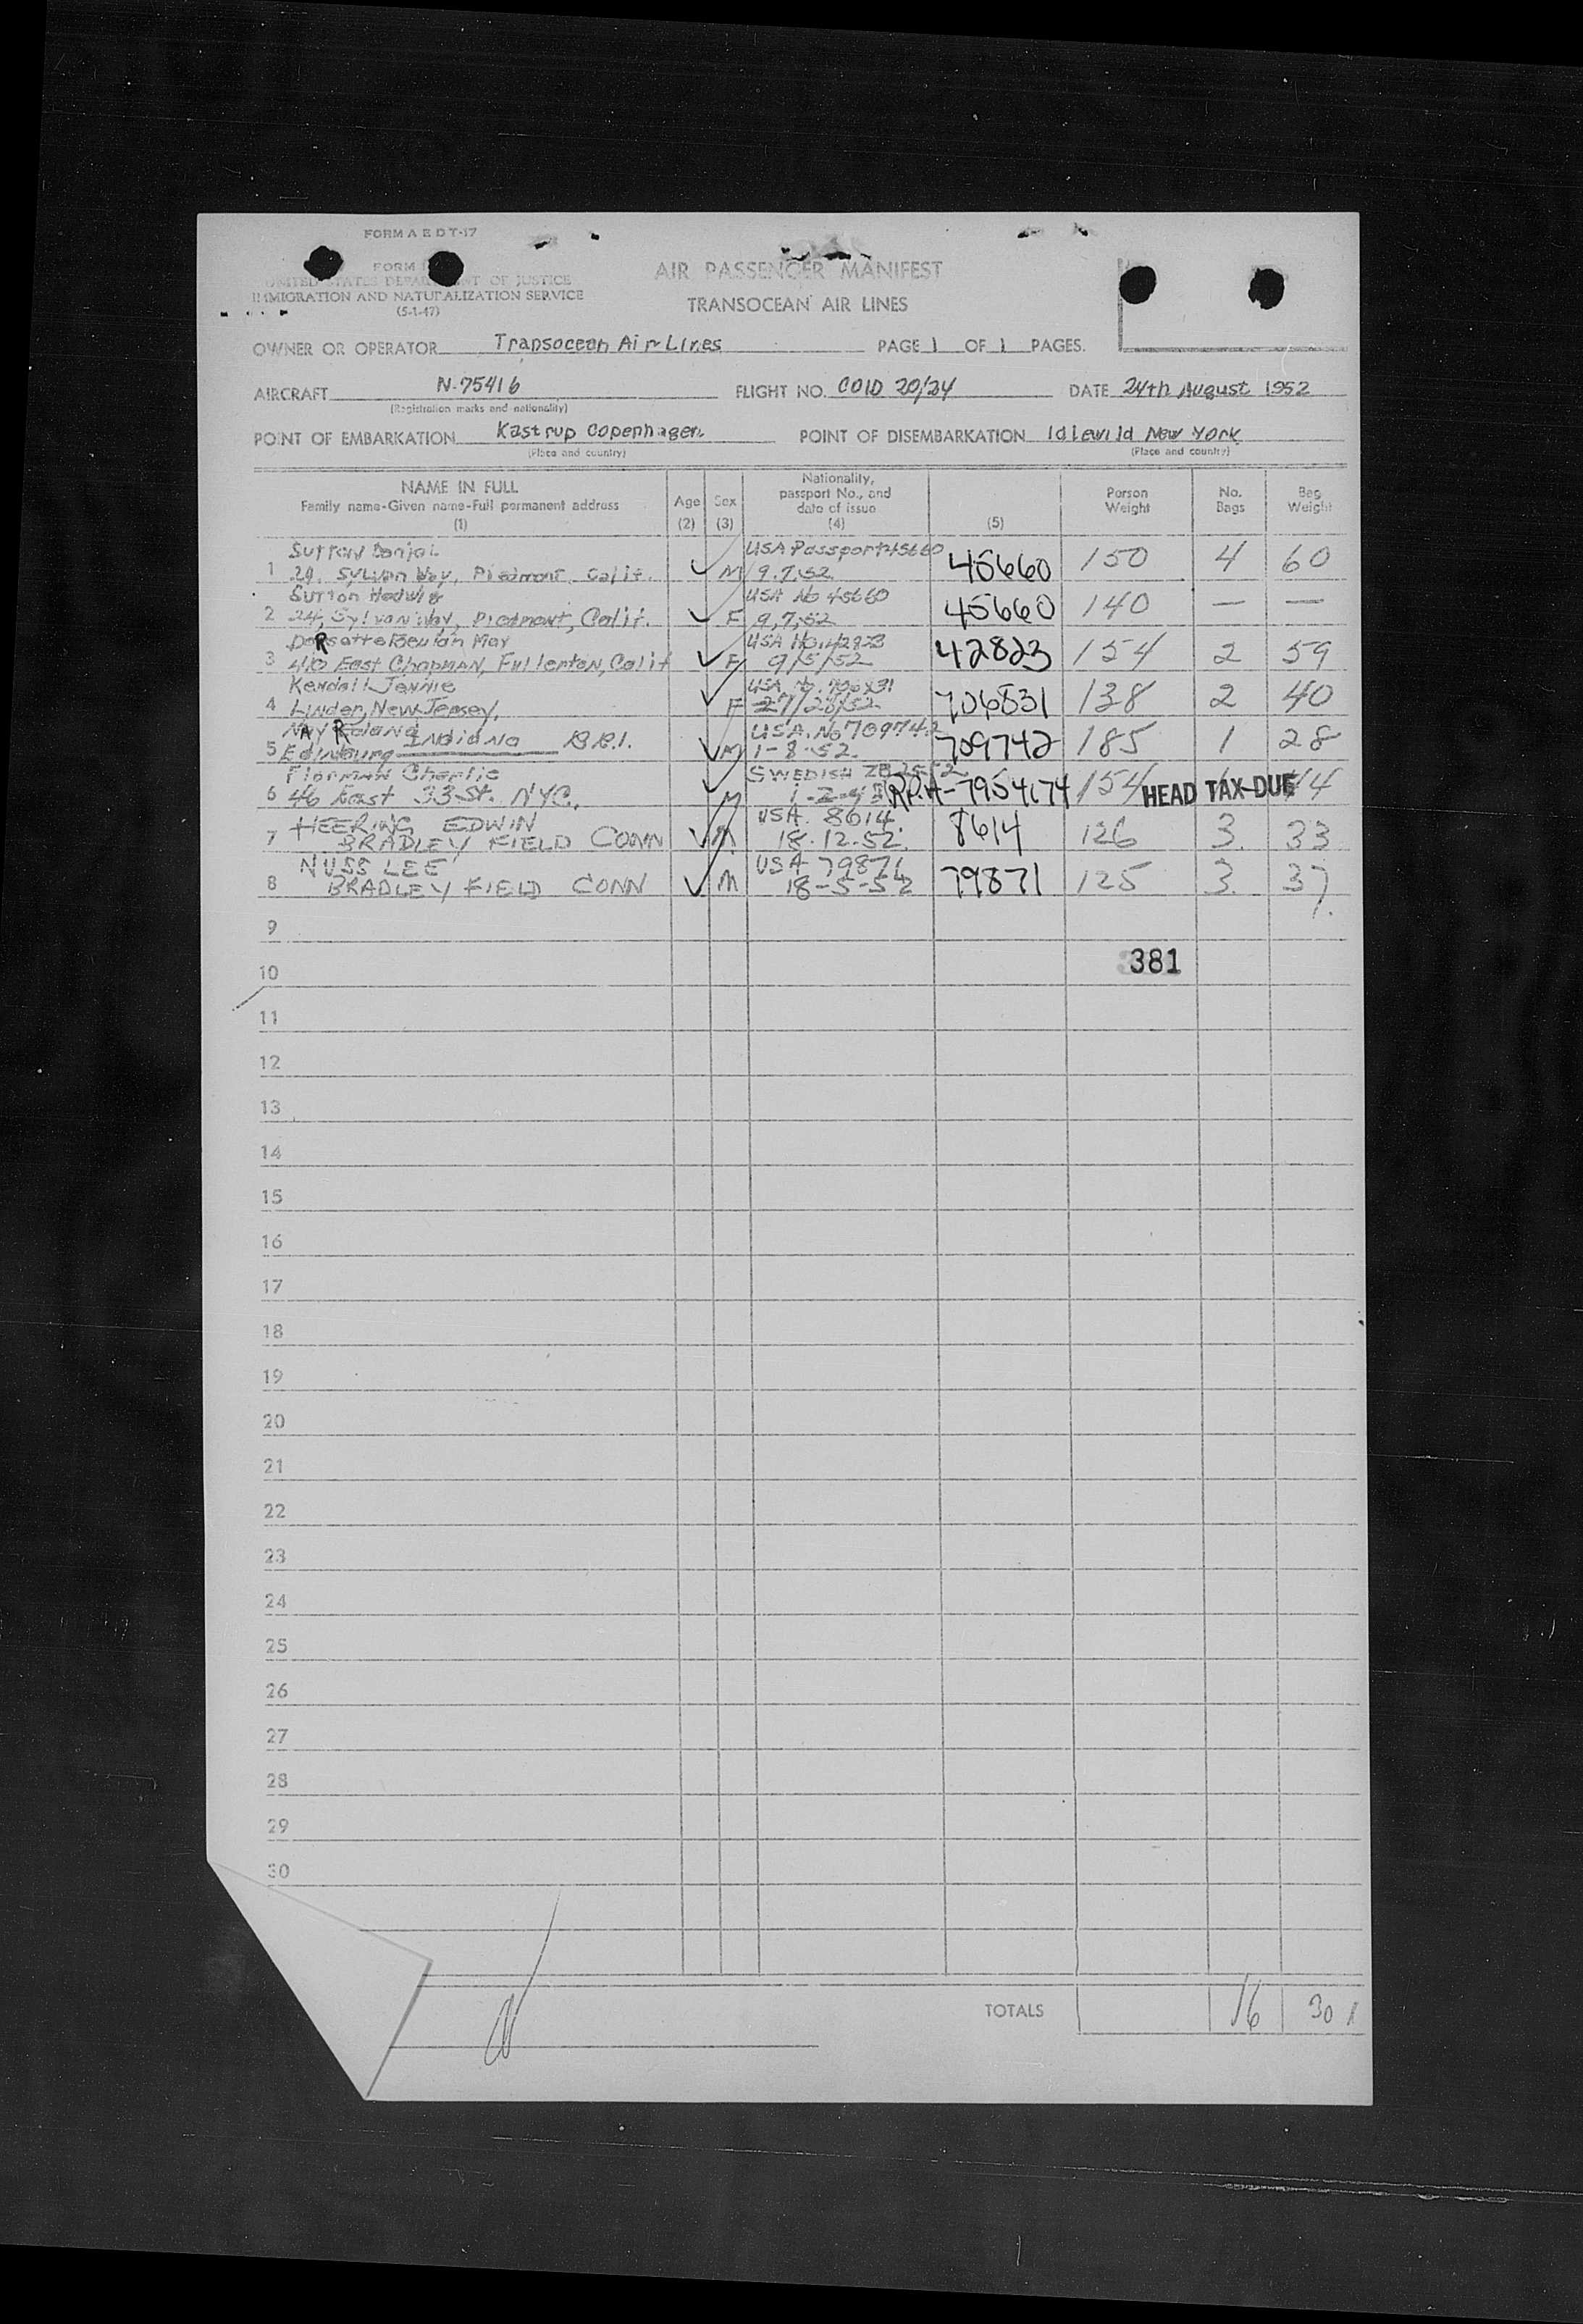 FORM A E D T-17
FORM
UNITED STATES DEPARTMENT OF JUSTICE
IMMIGRATION AND NATURALIZATION SERVICE
(5-1-47)
AIR PASSENGER MANIFEST
TRANSOCEAN AIR LINES
OWNER OR OPERATOR Transocean Air Lines PAGE 1 OF 1 PAGES.
AIRCRAFT N-75416 FLIGHT NO. COID 20/24 DATE 24th August 1952
(Registration marks and nationality)
POINT OF EMBARKATION Kastrup Copenhagen POINT OF DISEMBARKATION Idlewild New York
(Place and country) (Place and country)
NAME IN FULL
Family name-Given name-Full permanent address
(1)
Age
(2)
Sex
(3)
Nationality,
passport No., and
date of issue
(4)
(5)
Person
Weight
No.
Bags
Bag
Weight
Sutton USA Passport 45660
1 Sylvan Way, Piedmont, Calif. M 9.7.52 45660 150 4 60
Sutton Hedwig USA No 45660
2 24, Sylvan Way, Piedmont, Calif. F 9,7,52 45660 140 — —
Beulah May USA No. 42823
3 East Chapman, Fullerton, Calif F 9/5/52 42823 154 2 59
Kendall Jennie USA No. 706831
4 Linden, New Jersey. F 706831 138 2 40
Roland USA. No 709742
5 Edinburg Indiana M 1-8-52. 709742 185 1 28
Florman Charlie SWEDISH
6 46 East 33 St. NYC. M 154 HEAD TAX DUE 44
HEERING EDWIN USA. 8614.
7 BRADLEY FIELD CONN M 18.12.52. 8614 126 3. 33
NUSS LEE USA 79871
8 BRADLEY FIELD CONN M 18-5-52 79871 125 3. 37
9
10 381
11
12
13
14
15
16
17
18
19
20
21
22
23
24
25
26
27
28
29
30
TOTALS 16 301